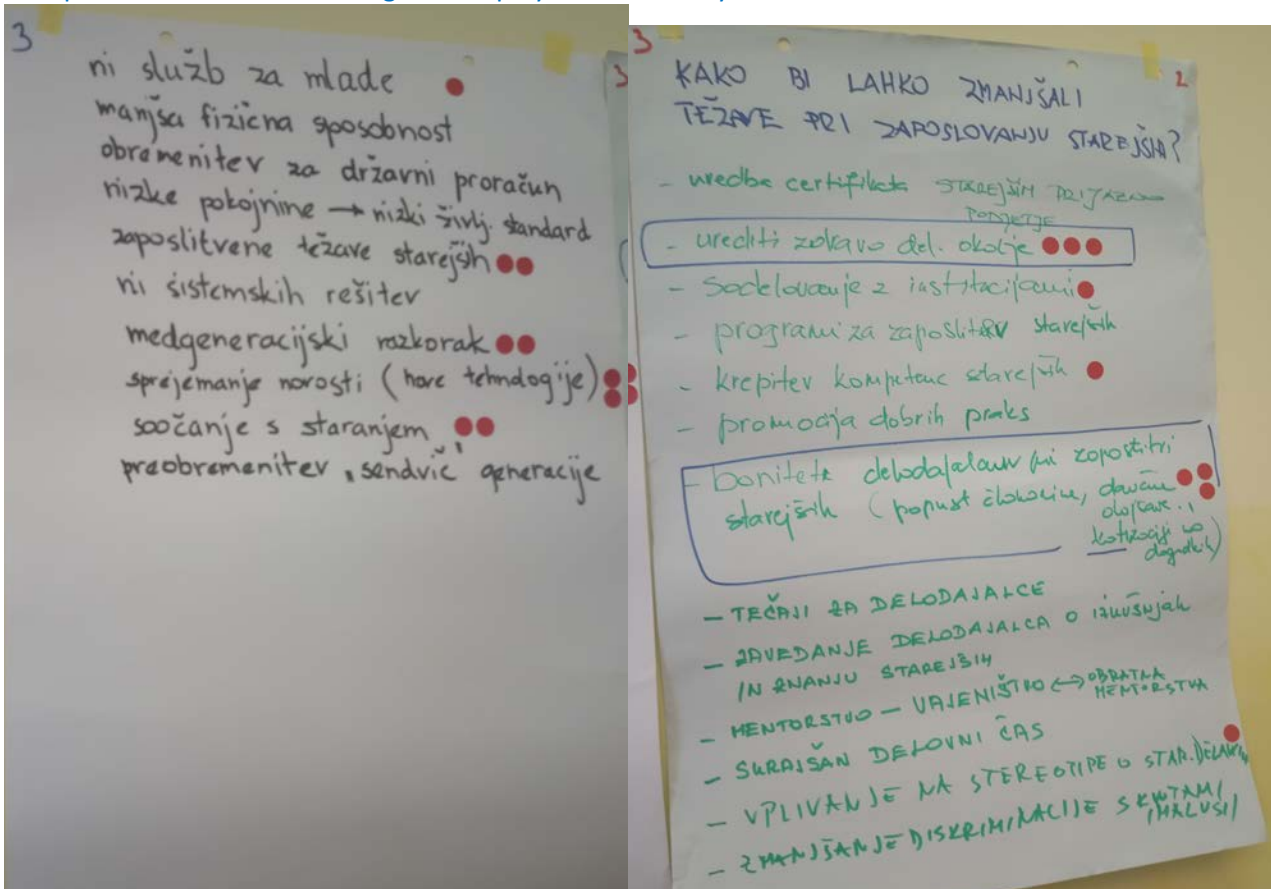 3
ni služb za mlade
manjša fizična sposobnost
obremenitev za državni proračun
nizke pokojnine → nizki življ. standard
zaposlitvene težave starejših
ni sistemskih rešitev
medgeneracijski razkorak
sprejemanje novosti (nove tehnologije)
soočanje s staranjem
preobremenitev "sendvič" generacije
3
3
2
KAKO BI LAHKO ZMANJŠALI
TEŽAVE PRI ZAPOSLOVANJU STAREJŠIH?
- uredba certifikata STAREJŠIM PRIJAZNO
PODJETJE
- urediti zdravo del. okolje
- Sodelovanje z institucijami
- programi za zaposlitev starejših
- krepitev kompetenc starejših
- promocija dobrih praks
- bonitete delodajalcev pri zaposlitvi
starejših (popust članarine, davčne
olajšave,
kotizaciji na
dogodkih)
- TEČAJI ZA DELODAJALCE
- ZAVEDANJE DELODAJALCA O IZKUŠNJAH
IN ZNANJU STAREJŠIH
- MENTORSTVO - VAJENIŠTVO ↔ OBRATNA
MENTORSTVA
- SKRAJŠAN DELOVNI ČAS
- VPLIVANJE NA STEREOTIPE O STAR. DELAVCIH
- ZMANJŠANJE DISKRIMINACIJE S KVOTAMI
/MALUSI/